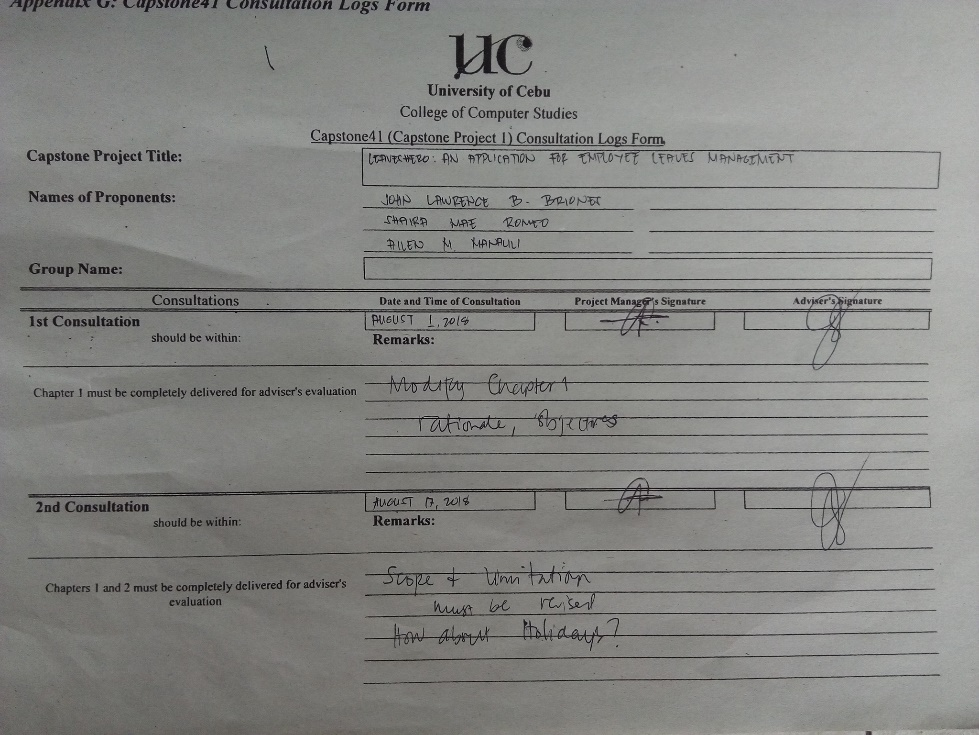 Appendix G: Capstone41 Consultation Logs Form
UC
University of Cebu
College of Computer Studies
Capstone41 (Capstone Project 1) Consultation Logs Form
Capstone Project Title: LEAVESHERO: AN APPLICATION FOR EMPLOYEE LEAVES MANAGEMENT
Names of Proponents: JOHN LAWRENCE B. BRIONES
SHAIRA MAE ROMEO
AILEN M. MANAULI
Group Name:
Consultations Date and Time of Consultation Project Manager's Signature Adviser's Signature
1st Consultation AUGUST 1, 2018
should be within: Remarks:
Chapter 1 must be completely delivered for adviser's evaluation Modify Chapter 1
rationale, objectives
2nd Consultation AUGUST 17, 2018
should be within: Remarks:
Chapters 1 and 2 must be completely delivered for adviser's
evaluation
Scope & limitation
must be revised
How about Holidays?